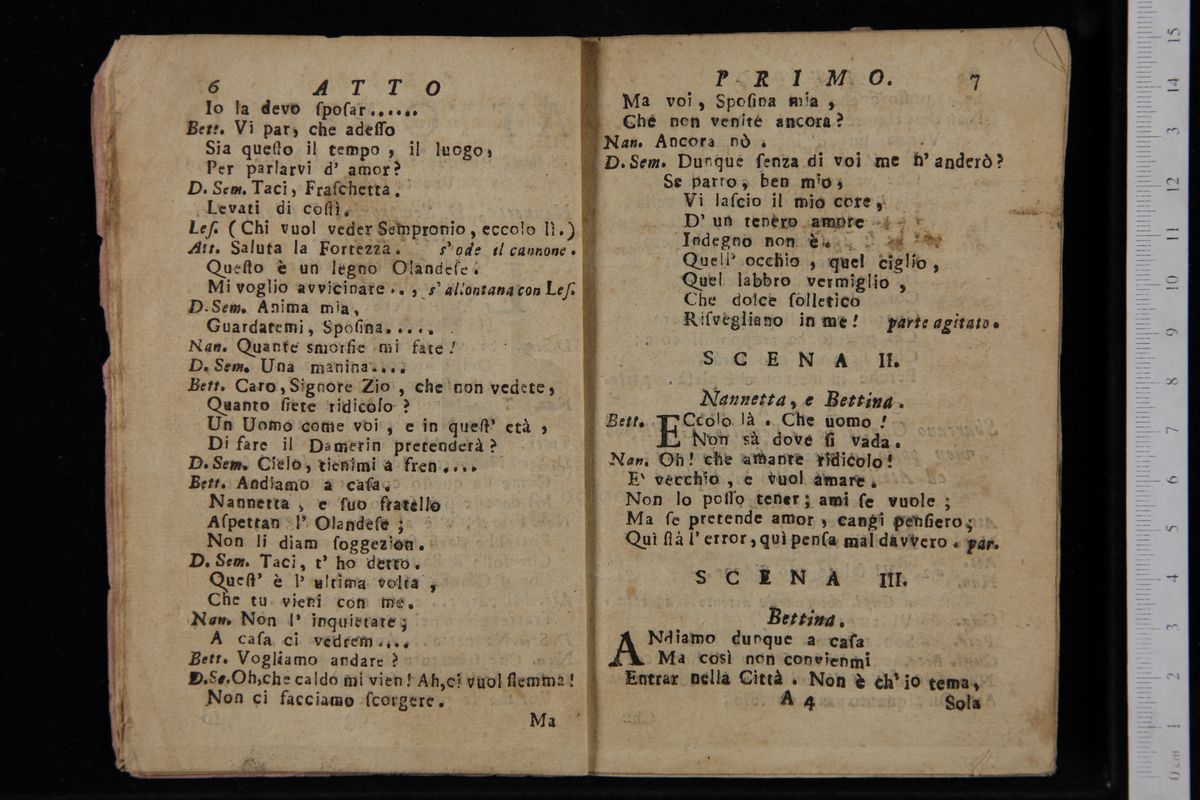 6 ATTO
Io la devo ſpoſar......
Bett. Vi par, che adeſſo
Sia queſto il tempo, il luogo,
Per parlarvi d' amor?
D. Sem. Taci, Fraſchetta.
Levati di coſtì.
Leſ. (Chi vuol veder Sempronio, eccolo lì.)
Att. Saluta la Fortezza. s'ode il cannone.
Queſto è un legno Olandeſe.
Mi voglio avvicinare .., s'allontana con Leſ.
D. Sem. Anima mia,
Guardatemi, Spoſina.....
Nan. Quante smorfie mi fate!
D. Sem. Una manina....
Bett. Caro, Signore Zio, che non vedete,
Quanto ſiete ridicolo?
Un Uomo come voi, e in queſt' età,
Di fare il Damerin pretenderà?
D. Sem. Cielo, tienimi a fren....
Bett. Andiamo a caſa.
Nannetta, e ſuo fratello
Aſpettan l' Olandeſe;
Non li diam ſoggezion.
D. Sem. Taci, t' ho detto.
Queſt' è l' ultima volta,
Che tu vieni con me.
Nan. Non l' inquietate;
A caſa ci vedrem....
Bett. Vogliamo andare?
D. Se. Oh, che caldo mi vien! Ah, ci vuol flemma!
Non ci facciamo ſcorgere.
Ma
PRIMO. 7
Ma voi, Spoſina mia,
Che non venite ancora?
Nan. Ancora nò.
D. Sem. Dunque ſenza di voi me n' anderò?
Se parto, ben mio,
Vi laſcio il mio core,
D' un tenero amore
Indegno non è.
Quell' occhio, quel ciglio,
Quel labbro vermiglio,
Che dolce ſolletico
Riſvegliano in me! parte agitato.
SCENA II.
Nannetta, e Bettina.
Bett. ECcolo là. Che uomo!
Non sà dove ſi vada.
Nan. Oh! che amante ridicolo!
E' vecchio, e vuol amare.
Non lo poſſo tener; ami ſe vuole;
Ma ſe pretende amor, cangi penſiero;
Quì ſtà l' error, quì penſa mal davvero. par.
SCENA III.
Bettina.
ANdiamo dunque a caſa
Ma così non convienmi
Entrar nella Città. Non è ch' io tema,
A 4 Sola
15
14
13
12
11
10
9
8
7
6
5
4
3
2
1
0 cm